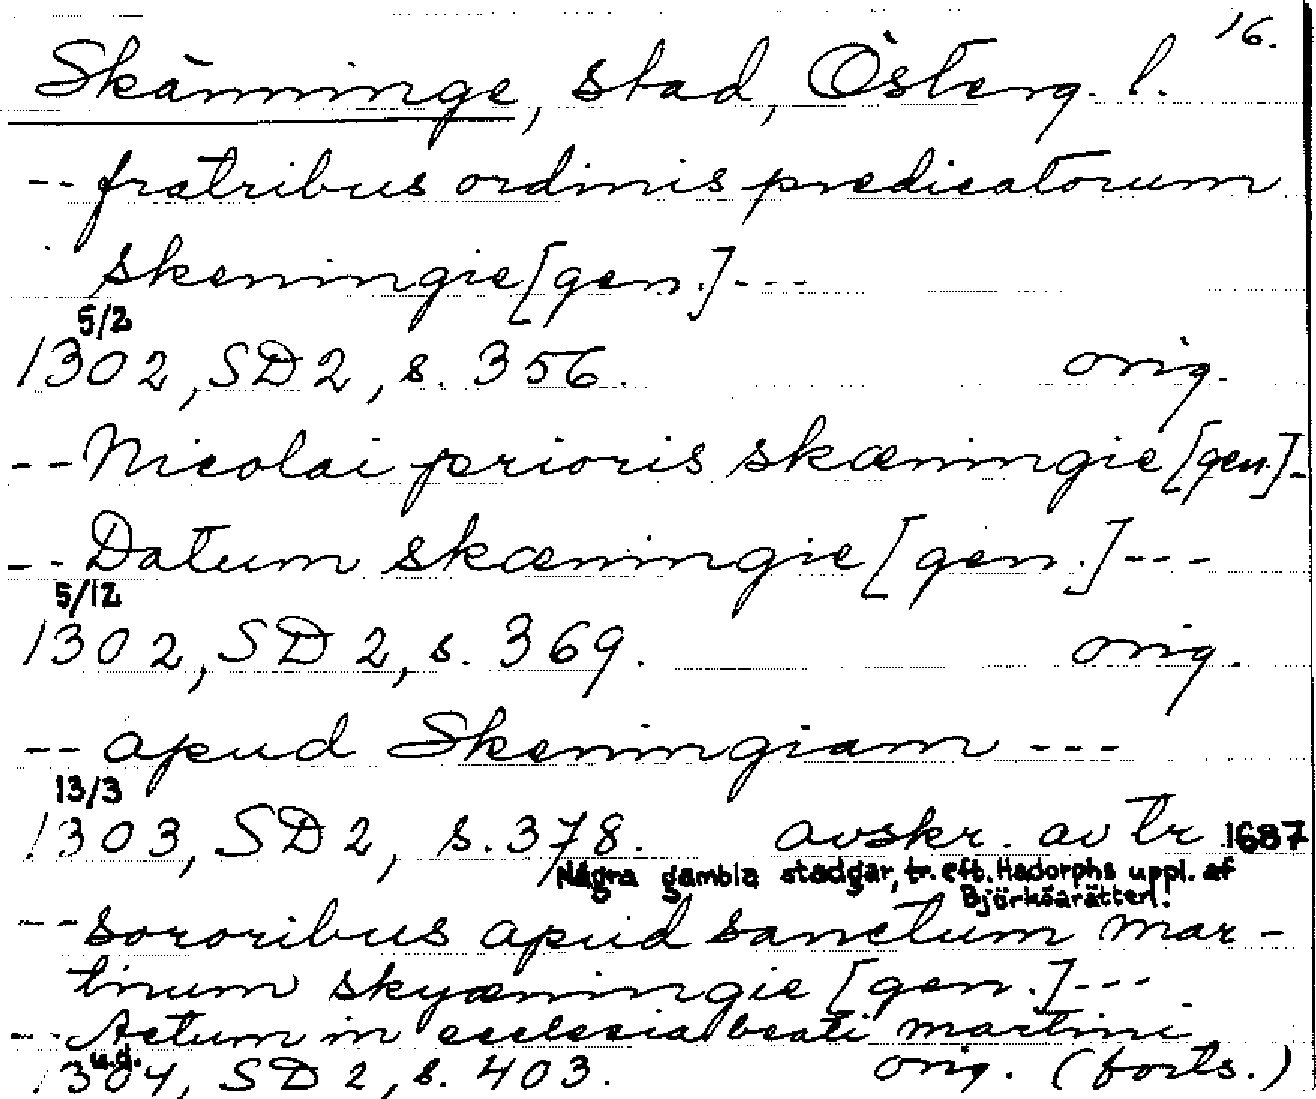 16.
Skänninge, stad, Österg. l.
-- fratribus ordinis predicatorum
skeningie [gen.] ---
5/2
1302, SD 2, s. 356. orig.
-- Nicolai prioris skæningie [gen.] -
-- Datum skæningie [gen.] ---
5/12
1302, SD 2, s. 369. orig.
-- apud Skeningiam ---
13/3
1303, SD 2, s. 378. avskr. av tr 1687
Några gambla stadgar, tr. eft. Hadorphs uppl. af
Björköarätten.
-- sororibus apud sanctum mar-
tinum skyæningie [gen.] ---
-- Actum in ecclesia beati martini
u.d.
1304, SD 2, s. 403. orig. (forts.)